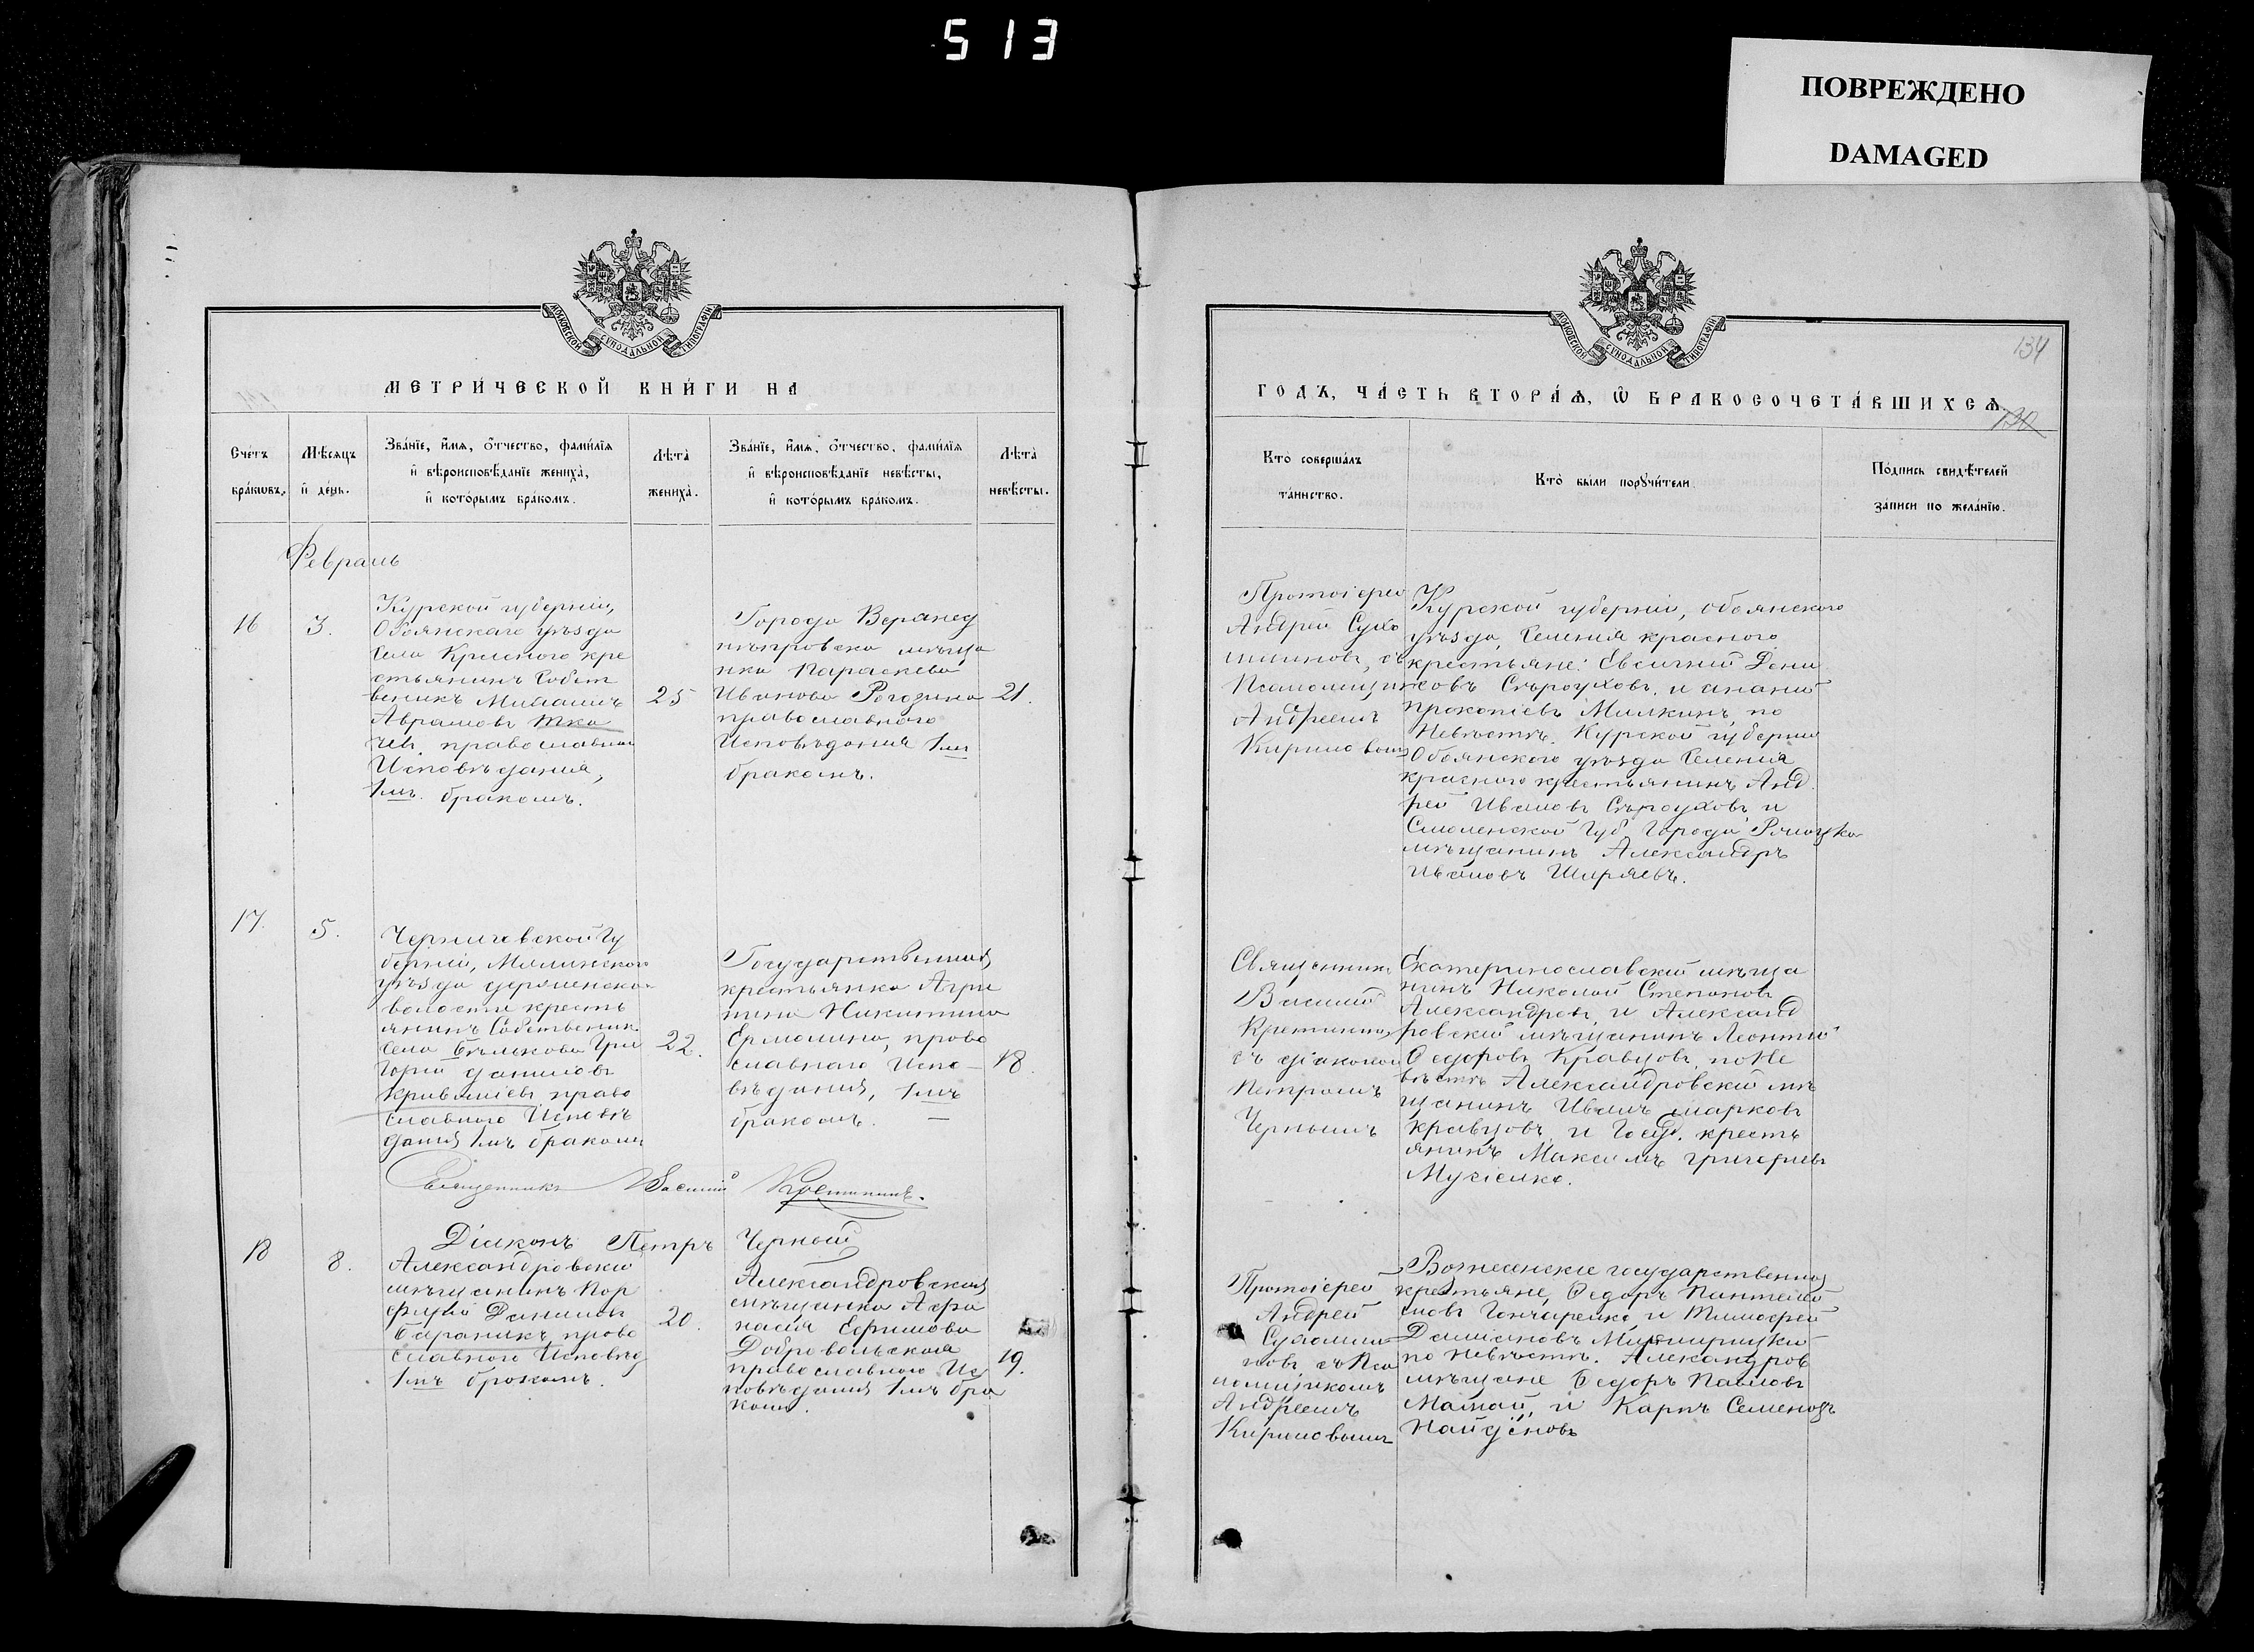 513
ПОВРЕЖДЕНО
DAMAGED
МОСКОВСКОЙ СѴНОДАЛЬНОЙ ТИПОГРАФІИ
МЕТРИ́ЧЕСКОЙ КНИ́ГИ НА
Сче́тъ
бра́кѡвъ.
Мѣ́сяцъ
и҆ де́нь.
Зва́нїе, и҆́мѧ, ѻ҆́тчество, фами́лїѧ
и҆ вѣроисповѣ́данїе жениха̀,
и҆ кото́рымъ бра́комъ.
Лѣ́та
жениха̀.
Зва́нїе, и҆́мѧ, ѻ҆́тчество, фами́лїѧ
и҆ вѣроисповѣ́данїе невѣ́сты,
и҆ кото́рымъ бра́комъ.
Лѣ́та
невѣ́сты.
Февраль
16
3.
Курской губерніи,
Обоянскаго уѣзда
Села Красного кре
стьянинъ Собст
веникъ Михаилъ
Аврамовъ Тка
чевъ, православнаго
Исповѣданія,
1мъ бракомъ.
25
Города Верхнед
нѣпровска мѣща
нка Параскева
Иванова Рогозина
православного
Исповѣданія 1мъ
бракомъ.
21.
17.
5.
Черниговской Гу
берніи, Мглинского
уѣзда
волости кресть
янинъ Собственик
Села Бѣлькова Гри
горій Даниловъ
православного Исповѣ
данія 1мъ бракомъ
22.
Государственная
крестьянка Агри
пина Никитина
Ермолина, право
славнаго Испо-
вѣданія, 1мъ
бракомъ. —
18.
Священникъ Василій Кретининъ.
Діаконъ Петръ Черный
18
8.
Александровскій
мѣщанинъ Пор
фирій Даниловъ
Бараникъ, право
славного Исповѣд
1мъ бракомъ.
20.
Александровская
мѣщанка Афа
насія Ефимова
Добровольская
православного Ис
повѣданія 1мъ бра
комъ.
19.
МОСКОВСКОЙ СѴНОДАЛЬНОЙ ТИПОГРАФІИ
134
ГОДЪ, ЧА́СТЬ ВТОРА́Ѧ, Ѡ҆ БРАКОСОЧЕТА́ВШИХСѦ
130
Кто̀ соверша́лъ
та́инство.
Кто̀ бы́ли порꙋчи́тели
По́дпись свидѣ́телей
за́писи по жела́нїю.
Протоіерей
Андрей Сухо
млиновъ, съ
Псаломщикомъ
Андреемъ
Кириловымъ
Курской губерніи, Обоянского
уѣзда, Селенія красного
крестьяне: Евсигній Дени
совъ Сѣроуховъ, и Ананій
Прокопіевъ Милкинъ, по
Невѣстѣ. Курской губерніи
Обоянского уѣзда Селенія
красного крестьянинъ Анд
рей Ивановъ Сѣроуховъ, и
Смоленской Губ. Города
мѣщанинъ Александръ
Ивановъ Ширяевъ.
Священникъ
Василій
Кретининъ
съ діакономъ
Петромъ
Чернымъ
Екатеринославскій мѣща
нинъ Николай Степановъ
Александровъ, и Александ
ровскій мѣщанинъ Леонтій
Ѳедоровъ Кравцовъ, по Не
вѣстѣ Александровскій мѣ
щанинъ Иванъ Марковъ
Кравцовъ, и Госуд. кресть
янинъ Максимъ Григорьевъ
Протоіерей
Андрей
Сухомли
новъ съ Пса
ломщикомъ
Андреемъ
Кириловымъ
Вознесенскіе государственные
крестьяне, Ѳедоръ Пантелей
моновъ Гончаренко, и Тимофей
Даміановъ
по Невѣстѣ. Александров
мѣщане Ѳедоръ Павловъ
Мамай, и Карпъ Семеновъ
Найдёновъ